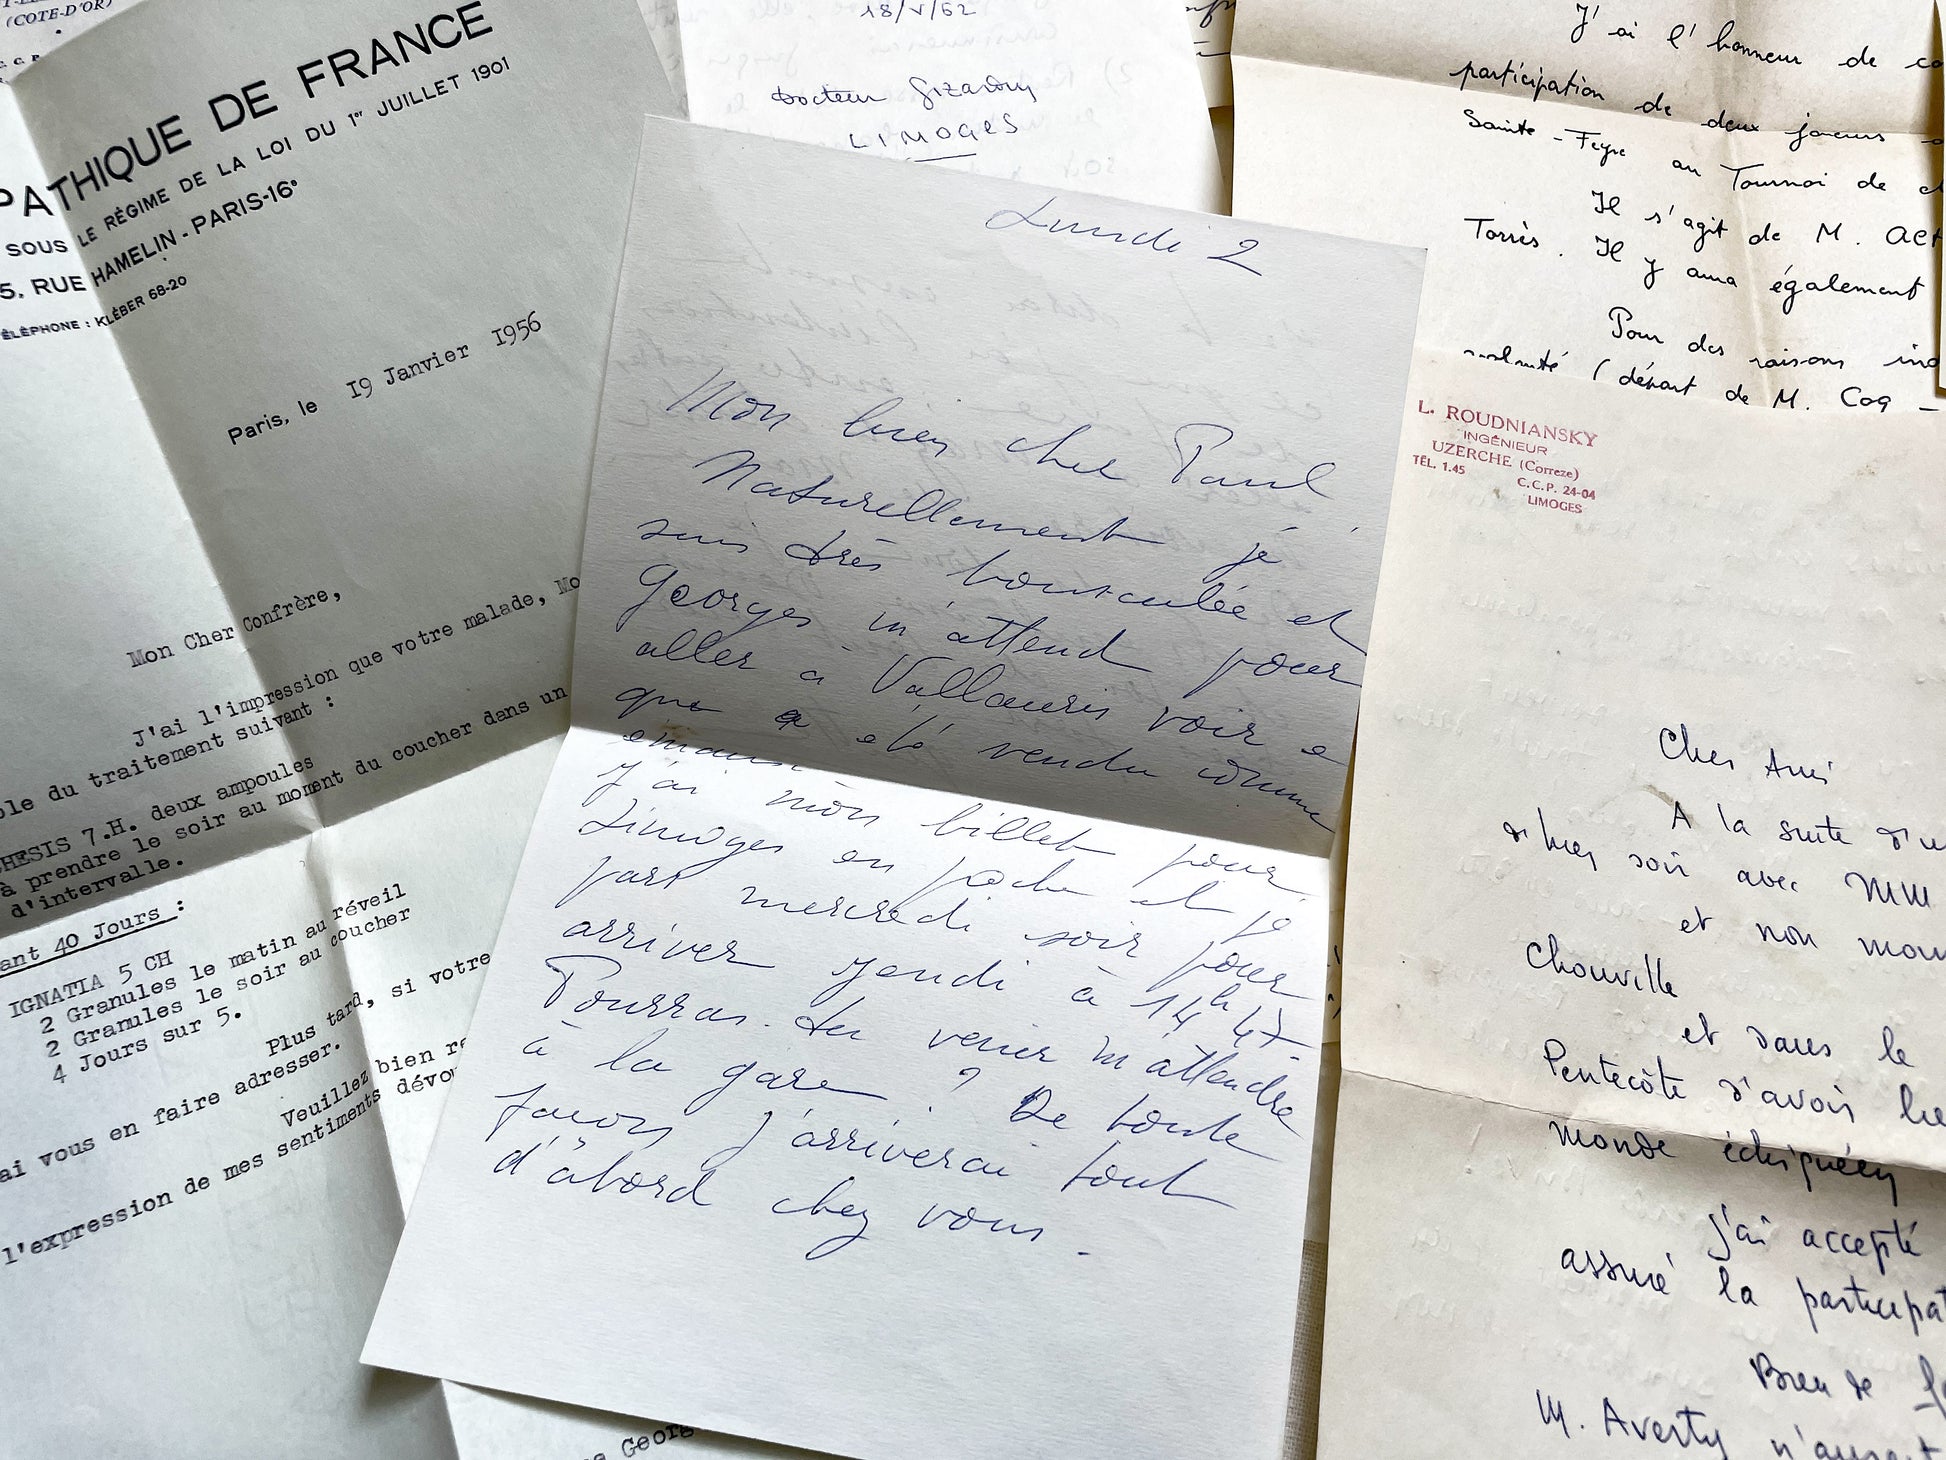 (COTE-D'OR)
PATHIQUE DE FRANCE
SOUS LE RÉGIME DE LA LOI DU 1er JUILLET 1901
5, RUE HAMELIN - PARIS-16e
TÉLÉPHONE : KLÉBER 68-20
Paris, le 19 Janvier 1956
Mon Cher Confrère,
J'ai l'impression que votre malade, Mo
ble du traitement suivant :
HESIS 7.H. deux ampoules
à prendre le soir au moment du coucher dans un
d'intervalle.
ant 40 Jours :
IGNATIA 5 CH
2 Granules le matin au réveil
2 Granules le soir au coucher
4 Jours sur 5.
Plus tard, si votre
ai vous en faire adresser.
Veuillez bien re
l'expression de mes sentiments dévou
18/V/62
Docteur Gizardy
LIMOGES
Lundi 2
Mon bien cher Paul
Naturellement je
suis très bousculée et
Georges m'attend pour
aller à Vallauris voir ce
que a été vendu comme
émaux
J'ai mon billet pour
Limoges en poche et je
pars mercredi soir pour
arriver jeudi à 14h 47.
Pourras-tu venir m'attendre
à la gare ? De toute
façon j'arriverai tout
d'abord chez vous.
Georg
J'ai l'honneur de co
participation de deux joueurs
Sainte-Feyre au Tournoi de
Il s'agit de M.
Torrès. Il y aura également
Pour des raisons ind
volonté (départ de M. Coq -
L. ROUDNIANSKY
INGÉNIEUR
UZERCHE (Correze)
TÉL. 1.45
C.C.P. 24-04
LIMOGES
Cher Ami
A la suite d'u
d'hier soir avec MM
et non
Chouville
et dans le
Pentecôte d'avoir
monde échiquéen
J'ai accepté
assuré la participat
Bien de
M. Averty n'aurait